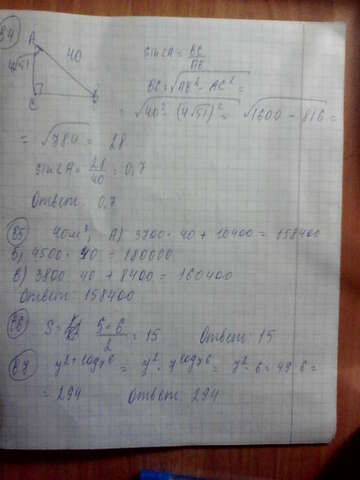 B4
A
40
4√51
C
B
sin∠A = BC/AB
BC = √AB² - AC² =
= √40² - (4√51)² = √1600 - 816 =
= √784 = 28
sin∠A = 28/40 = 0,7
Ответ: 0,7
B5 40м³, А) 3700 · 40 + 10400 = 158400
б) 4500 · 40 = 180000
в) 3800 · 40 + 8400 = 160400
Ответ 158400
B6 S = 5·6/2 = 15 Ответ: 15
B7 7^2+log₇6 = 7² · 7^log₇6 = 7² · 6 = 49 · 6 =
= 294 Ответ: 294